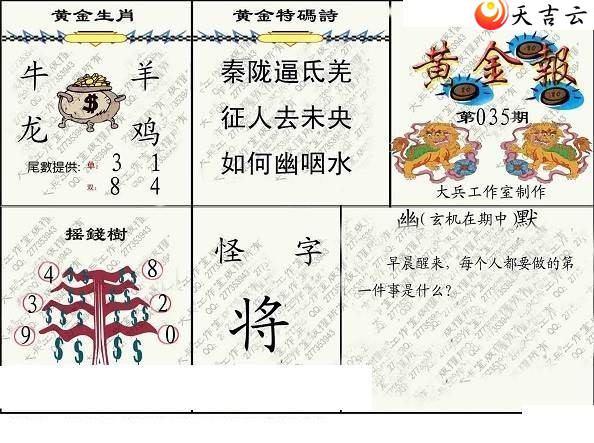 天吉云
黄金生肖
牛 羊
龙 鸡
尾數提供: 单: 3 1
双: 8 4
黄金特碼詩
秦陇逼氐羌
征人去未央
如何幽咽水
黄金報
第035期
大兵工作室制作
摇錢樹
4 8
3 2
9 0
怪 字
将
幽(玄机在期中)默
早晨醒来，每个人都要做的第
一件事是什么？